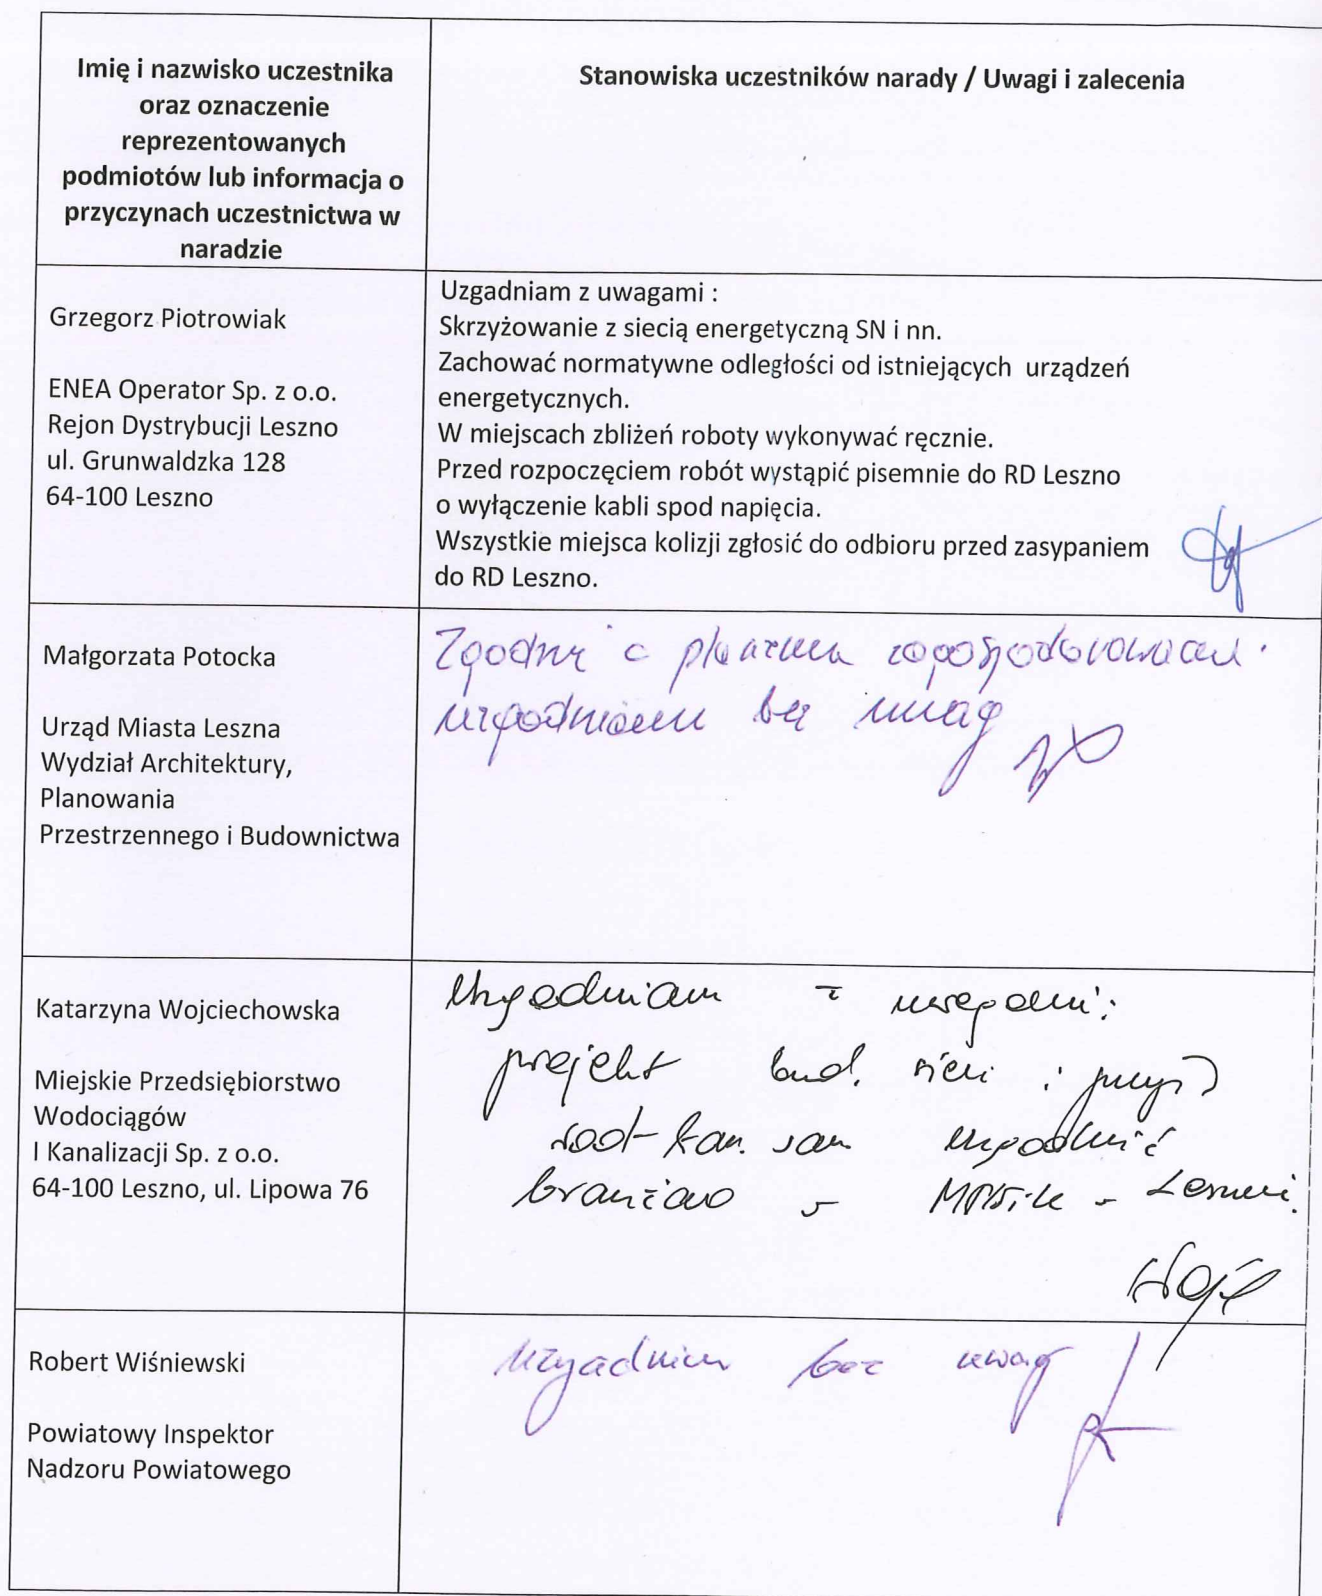 Imię i nazwisko uczestnika
oraz oznaczenie
reprezentowanych
podmiotów lub informacja o
przyczynach uczestnictwa w
naradzie
Stanowiska uczestników narady / Uwagi i zalecenia
Grzegorz Piotrowiak
ENEA Operator Sp. z o.o.
Rejon Dystrybucji Leszno
ul. Grunwaldzka 128
64-100 Leszno
Uzgadniam z uwagami :
Skrzyżowanie z siecią energetyczną SN i nn.
Zachować normatywne odległości od istniejących urządzeń
energetycznych.
W miejscach zbliżeń roboty wykonywać ręcznie.
Przed rozpoczęciem robót wystąpić pisemnie do RD Leszno
o wyłączenie kabli spod napięcia.
Wszystkie miejsca kolizji zgłosić do odbioru przed zasypaniem
do RD Leszno.
Małgorzata Potocka
Urząd Miasta Leszna
Wydział Architektury,
Planowania
Przestrzennego i Budownictwa
Zgodnie z planem zagospodarowania.
uzgadniam bez uwag
Katarzyna Wojciechowska
Miejskie Przedsiębiorstwo
Wodociągów
I Kanalizacji Sp. z o.o.
64-100 Leszno, ul. Lipowa 76
Uzgadniam z uwagami:
projekt bud. sieci i przył
wod-kan. san uzgodnić
branżowo w MPWiK - Leszno.
Robert Wiśniewski
Powiatowy Inspektor
Nadzoru Powiatowego
uzgadniam bez uwag